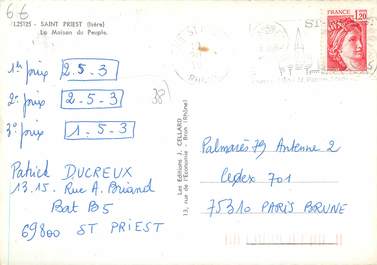 6 €
L25125 - SAINT PRIEST (Isère)
La Maison du Peuple.
1er prix 2.5.3
2e prix 2-5-3
3e prix 1.5.3
38
Patrick DUCREUX
13.15. Rue A. Briand
Bat B5
69800 ST PRIEST
Les Editions J. CELLARD
13, rue de l'Economie - Bron (Rhône)
FRANCE
1,20
Palmarès 79 Antenne 2
Cedex 701
75310 PARIS BRUNE